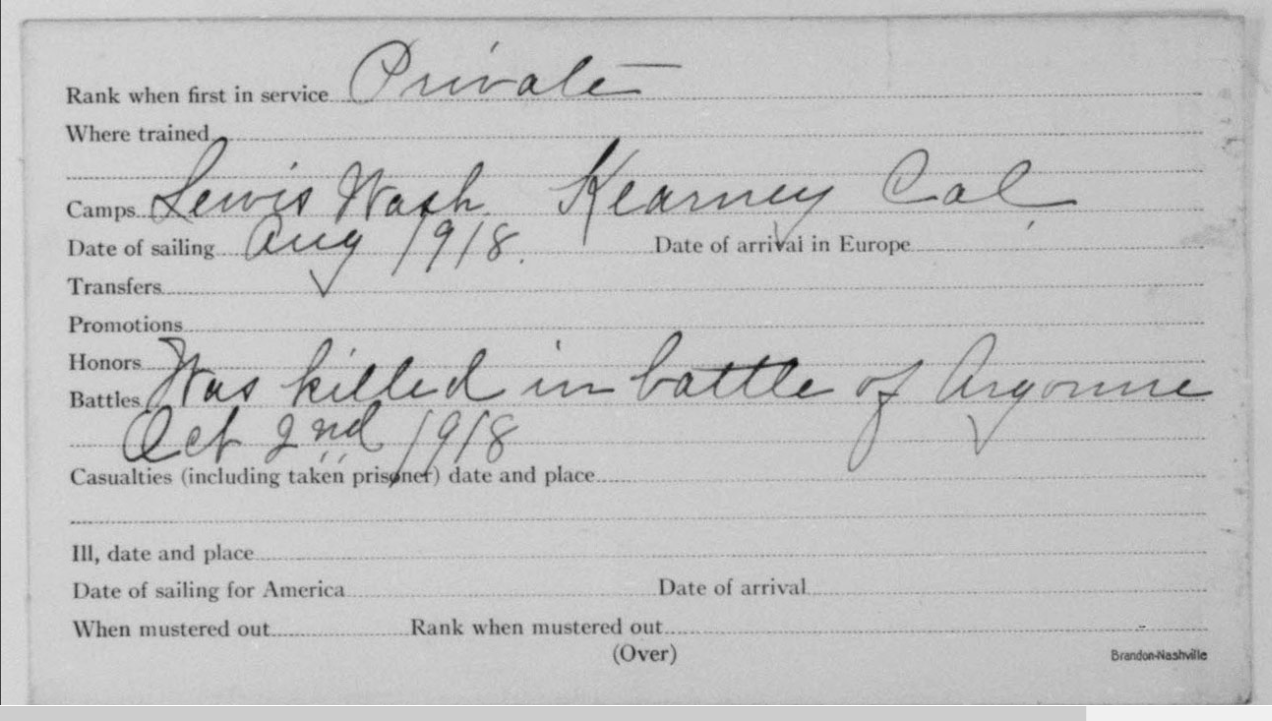 Rank when first in service Private
Where trained
Camps Lewis Wash. Kearney Cal.
Date of sailing Aug 1918. Date of arrival in Europe
Transfers
Promotions
Honors
Battles Was killed in battle of Argonne
Oct 2nd 1918
Casualties (including taken prisoner) date and place
Ill, date and place
Date of sailing for America Date of arrival
When mustered out Rank when mustered out
(Over)
Brandon-Nashville